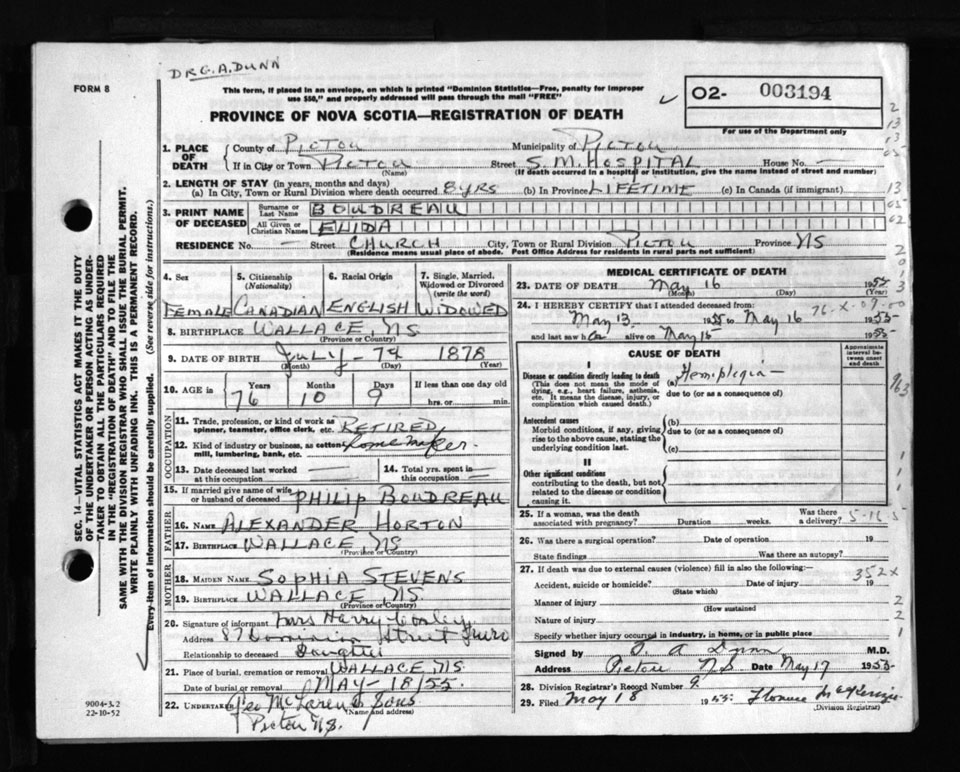 DR G. A. DUNN
FORM 8
This form, if placed in an envelope, on which is printed "Dominion Statistics—Free, penalty for improper
use $50," and properly addressed will pass through the mail "FREE"
O2- 003194
For use of the Department only
PROVINCE OF NOVA SCOTIA—REGISTRATION OF DEATH
1. PLACE OF DEATH County of PICTOU Municipality of PICTOU
If in City or Town PICTOU (Name) Street S. M. HOSPITAL House No. —
(If death occurred in a hospital or institution, give the name instead of street and number)
2. LENGTH OF STAY (in years, months and days)
(a) In City, Town or Rural Division where death occurred 8 yrs (b) In Province LIFETIME (c) In Canada (if immigrant)
3. PRINT NAME OF DECEASED Surname or Last Name BOUDREAU
All Given or Christian Names ELIDA
RESIDENCE No. — Street CHURCH City, Town or Rural Division PICTOU Province NS
(Residence means usual place of abode. Post Office Address for residents in rural parts not sufficient)
4. Sex FEMALE
5. Citizenship (Nationality) CANADIAN
6. Racial Origin ENGLISH
7. Single, Married, Widowed or Divorced (write the word) WIDOWED
8. BIRTHPLACE WALLACE, NS
(Province or Country)
9. DATE OF BIRTH July 7th 1878
(Month) (Day) (Year)
10. AGE in Years 76 Months 10 Days 9 If less than one day old hrs. or min.
OCCUPATION
11. Trade, profession, or kind of work as spinner, teamster, office clerk, etc. RETIRED
12. Kind of industry or business, as cotton mill, lumbering, bank, etc.
13. Date deceased last worked at this occupation —
14. Total yrs. spent in this occupation —
15. If married give name of wife or husband of deceased PHILIP BOUDREAU
FATHER
16. NAME ALEXANDER HORTON
17. BIRTHPLACE WALLACE NS
(Province or Country)
MOTHER
18. MAIDEN NAME SOPHIA STEVENS
19. BIRTHPLACE WALLACE, NS.
(Province or Country)
20. Signature of informant Mrs Harry
Address 87 Dominion Street Truro
Relationship to deceased Daughter
21. Place of burial, cremation or removal WALLACE, NS.
Date of burial or removal MAY-18/55.
22. UNDERTAKER Geo McLaren & Sons
(Name and address)
Pictou NS.
9004-3.2
22-10-52
SEC. 14—VITAL STATISTICS ACT MAKES IT THE DUTY
OF THE UNDERTAKER OR PERSON ACTING AS UNDER-
TAKER TO OBTAIN ALL THE PARTICULARS REQUIRED
IN THE "REGISTRATION OF DEATH" AND TO FILE THE
SAME WITH THE DIVISION REGISTRAR WHO SHALL ISSUE THE BURIAL PERMIT.
WRITE PLAINLY WITH UNFADING INK. THIS IS A PERMANENT RECORD.
Every item of information should be carefully supplied. (See reverse side for instructions.)
MEDICAL CERTIFICATE OF DEATH
23. DATE OF DEATH May 16 195
(Month) (Day) (Year)
24. I HEREBY CERTIFY that I attended deceased from:
May 13 1955 to May 16 1955
and last saw her alive on May 15 1955
CAUSE OF DEATH
Approximate interval between onset and death
I
Disease or condition directly leading to death (a) Hemiplegia
(This does not mean the mode of dying, e.g., heart failure, asthenia, etc. It means the disease, injury, or complication which caused death.)
due to (or as a consequence of)
Antecedent causes (b)
Morbid conditions, if any, giving rise to the above cause, stating the underlying condition last.
due to (or as a consequence of)
(c)
II
Other significant conditions
contributing to the death, but not related to the disease or condition causing it.
25. If a woman, was the death associated with pregnancy? Duration weeks. Was there a delivery?
26. Was there a surgical operation? Date of operation 19
State findings Was there an autopsy?
27. If death was due to external causes (violence) fill in also the following:— 352x
Accident, suicide or homicide? (State which) Date of injury 19
Manner of injury (How sustained)
Nature of injury
Specify whether injury occurred in industry, in home, or in public place
Signed by A Dunn M.D.
Address Pictou N.S. Date May 17 1955
28. Division Registrar's Record Number 9
29. Filed May 18 1955 Florence McKenzie
(Division Registrar)